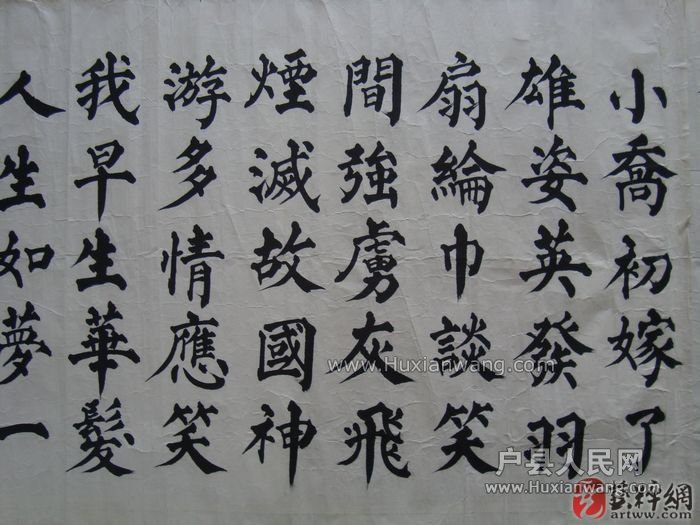 小喬初嫁了
雄姿英發羽
扇綸巾談笑
間強虜灰飛
煙滅故國神
游多情應笑
我早生華髮
人生如夢一
www.Huxianwang.com
户县人民网
www.Huxianwang.com
藝粹網
artww.com